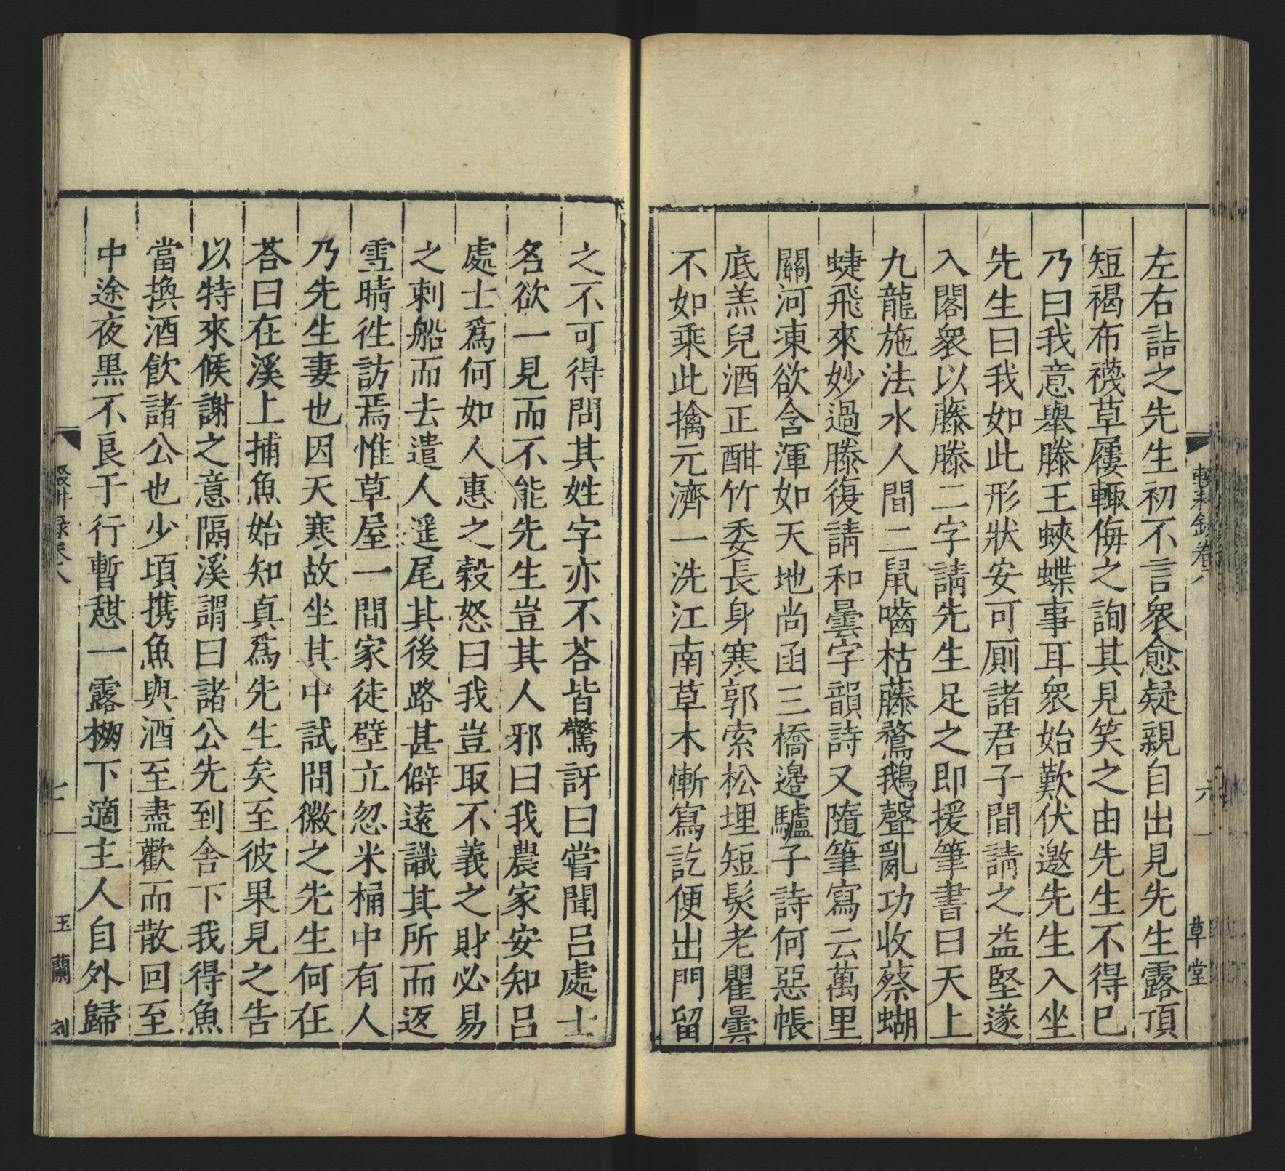 左右詰之先生初不言衆愈疑親自出見先生露頂
短褐布襪草屨輒侮之詢其見笑之由先生不得已
乃曰我意舉滕王蛺蝶事耳衆始歎伏邀先生入坐
先生曰我如此形狀安可厠諸君子間請之益堅遂
入閣衆以藤滕二字請先生足之即援筆書曰天上
九龍施法水人間二鼠嚙枯藤鶩鵝聲亂功收蔡蝴
蜨飛來妙過滕復請和曇字韻詩又隨筆寫云萬里
關河凍欲含渾如天地尚函三橋邊驢子詩何惡帳
底羔兒酒正酣竹委長身寒郭索松埋短髮老瞿曇
不如乘此擒元濟一洗江南草木慚寫訖便出門留
輟耕錄卷八
六
草堂
之不可得問其姓字亦不荅皆驚訝曰嘗聞呂處士
名欲一見而不能先生豈其人邪曰我農家安知呂
處士爲何如人惠之穀怒曰我豈取不義之財必易
之刺船而去遣人遥尾其後路甚僻遠識其所而返
雪晴徃訪焉惟草屋一間家徒壁立忽米桶中有人
乃先生妻也因天寒故坐其中試問徽之先生何在
荅曰在溪上捕魚始知真爲先生矣至彼果見之告
以特來候謝之意隔溪謂曰諸公先到舍下我得魚
當換酒飲諸公也少頃携魚與酒至盡歡而散回至
中途夜黒不良于行暫憇一露棚下適主人自外歸
輟耕錄卷八
七
玉蘭